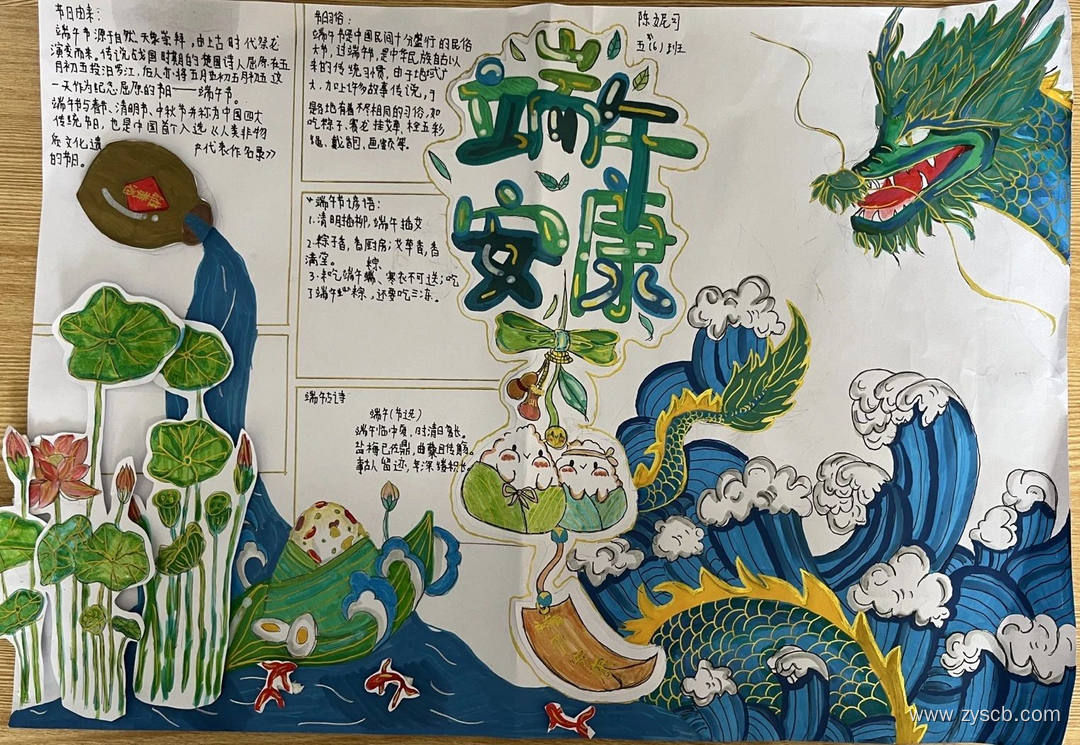 节日由来:
端午节源于自然天象崇拜,由上古时代祭龙
演变而来。传说战国时期的楚国诗人屈原在五
月初五投汨罗江,后人亦将五月初五
一天作为纪念屈原的节日——端午节。
端午节与春节、清明节、中秋节并称为中国四大
传统节日,也是中国首个入选《人类非物
质文化遗 产代表作名录》
的节日。
节日习俗:
端午节是中国民间十分盛行的民俗
大节,过端午节,是中华民族自古以
来的传统习惯,由于地域广
大,加上许多故事传说,于
是各地有着不相同的习俗,如
吃粽子、赛龙 挂艾草、栓五彩
绳、戴香包、画额等。
端午节谚语:
1.清明插柳,端午插艾
2.粽子香,香厨房;艾草香,香
满堂。
3.未吃端午粽,寒衣不可送;吃
了端午粽,还要吃三冻。
端午古诗
端午(节选)
端午临中夏,时清日复长。
盐梅已佐鼎,曲糵且传觞。
事古人留迹,年深缕积长。
端午
安康
陈妮可
五(6)班
www.zyscb.com